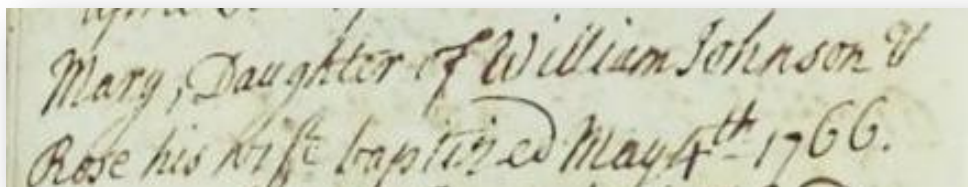 Mary, Daughter of William Johnson &
Rose his wife baptized May 4th 1766.